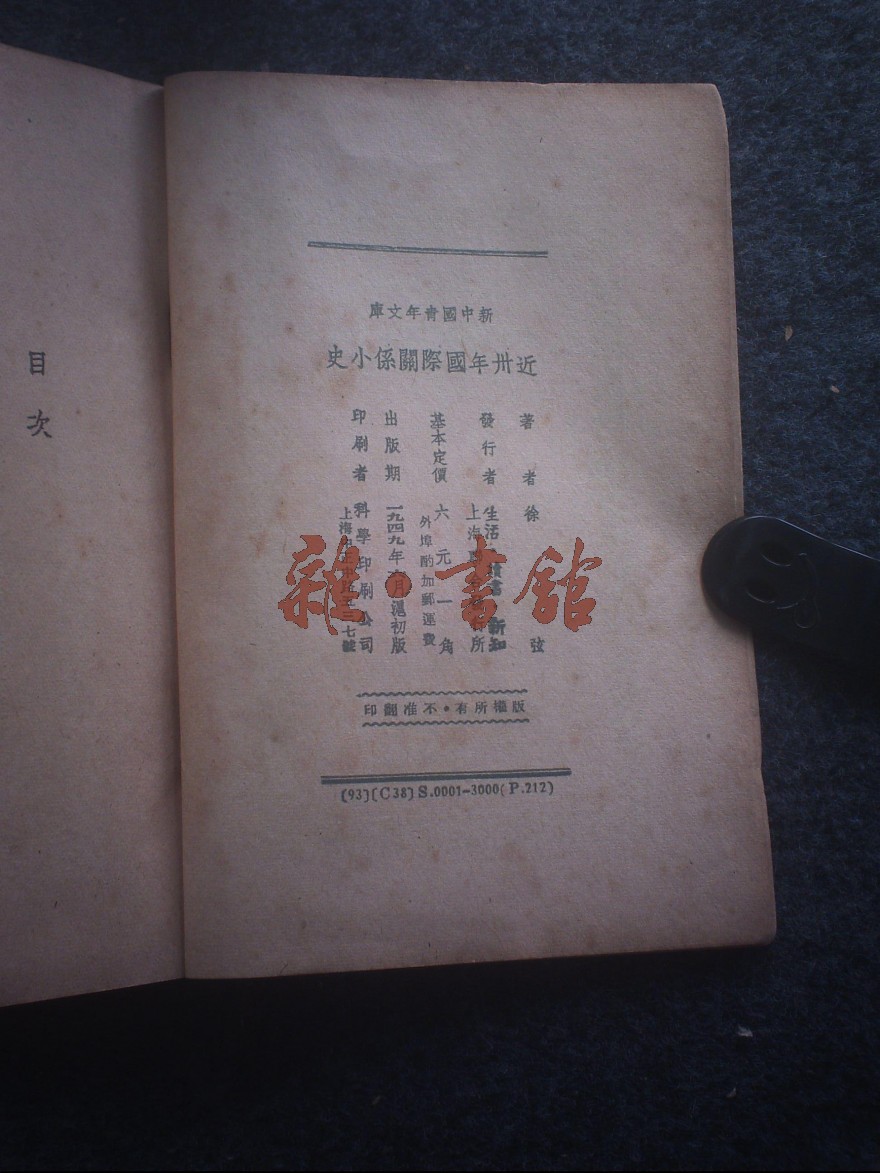 目次
新中國青年文庫
近卅年國際關係小史
著者 徐弦
發行者 生活 讀書 新知
上海聯合發行所
基本定價 六元一角
外埠酌加郵運費
出版期 一九四九年六月滬初版
印刷者 科學印刷公司
上海 路 七號
版權所有·不准翻印
(93)(C38)S.0001-3000(P.212)
雜·書館